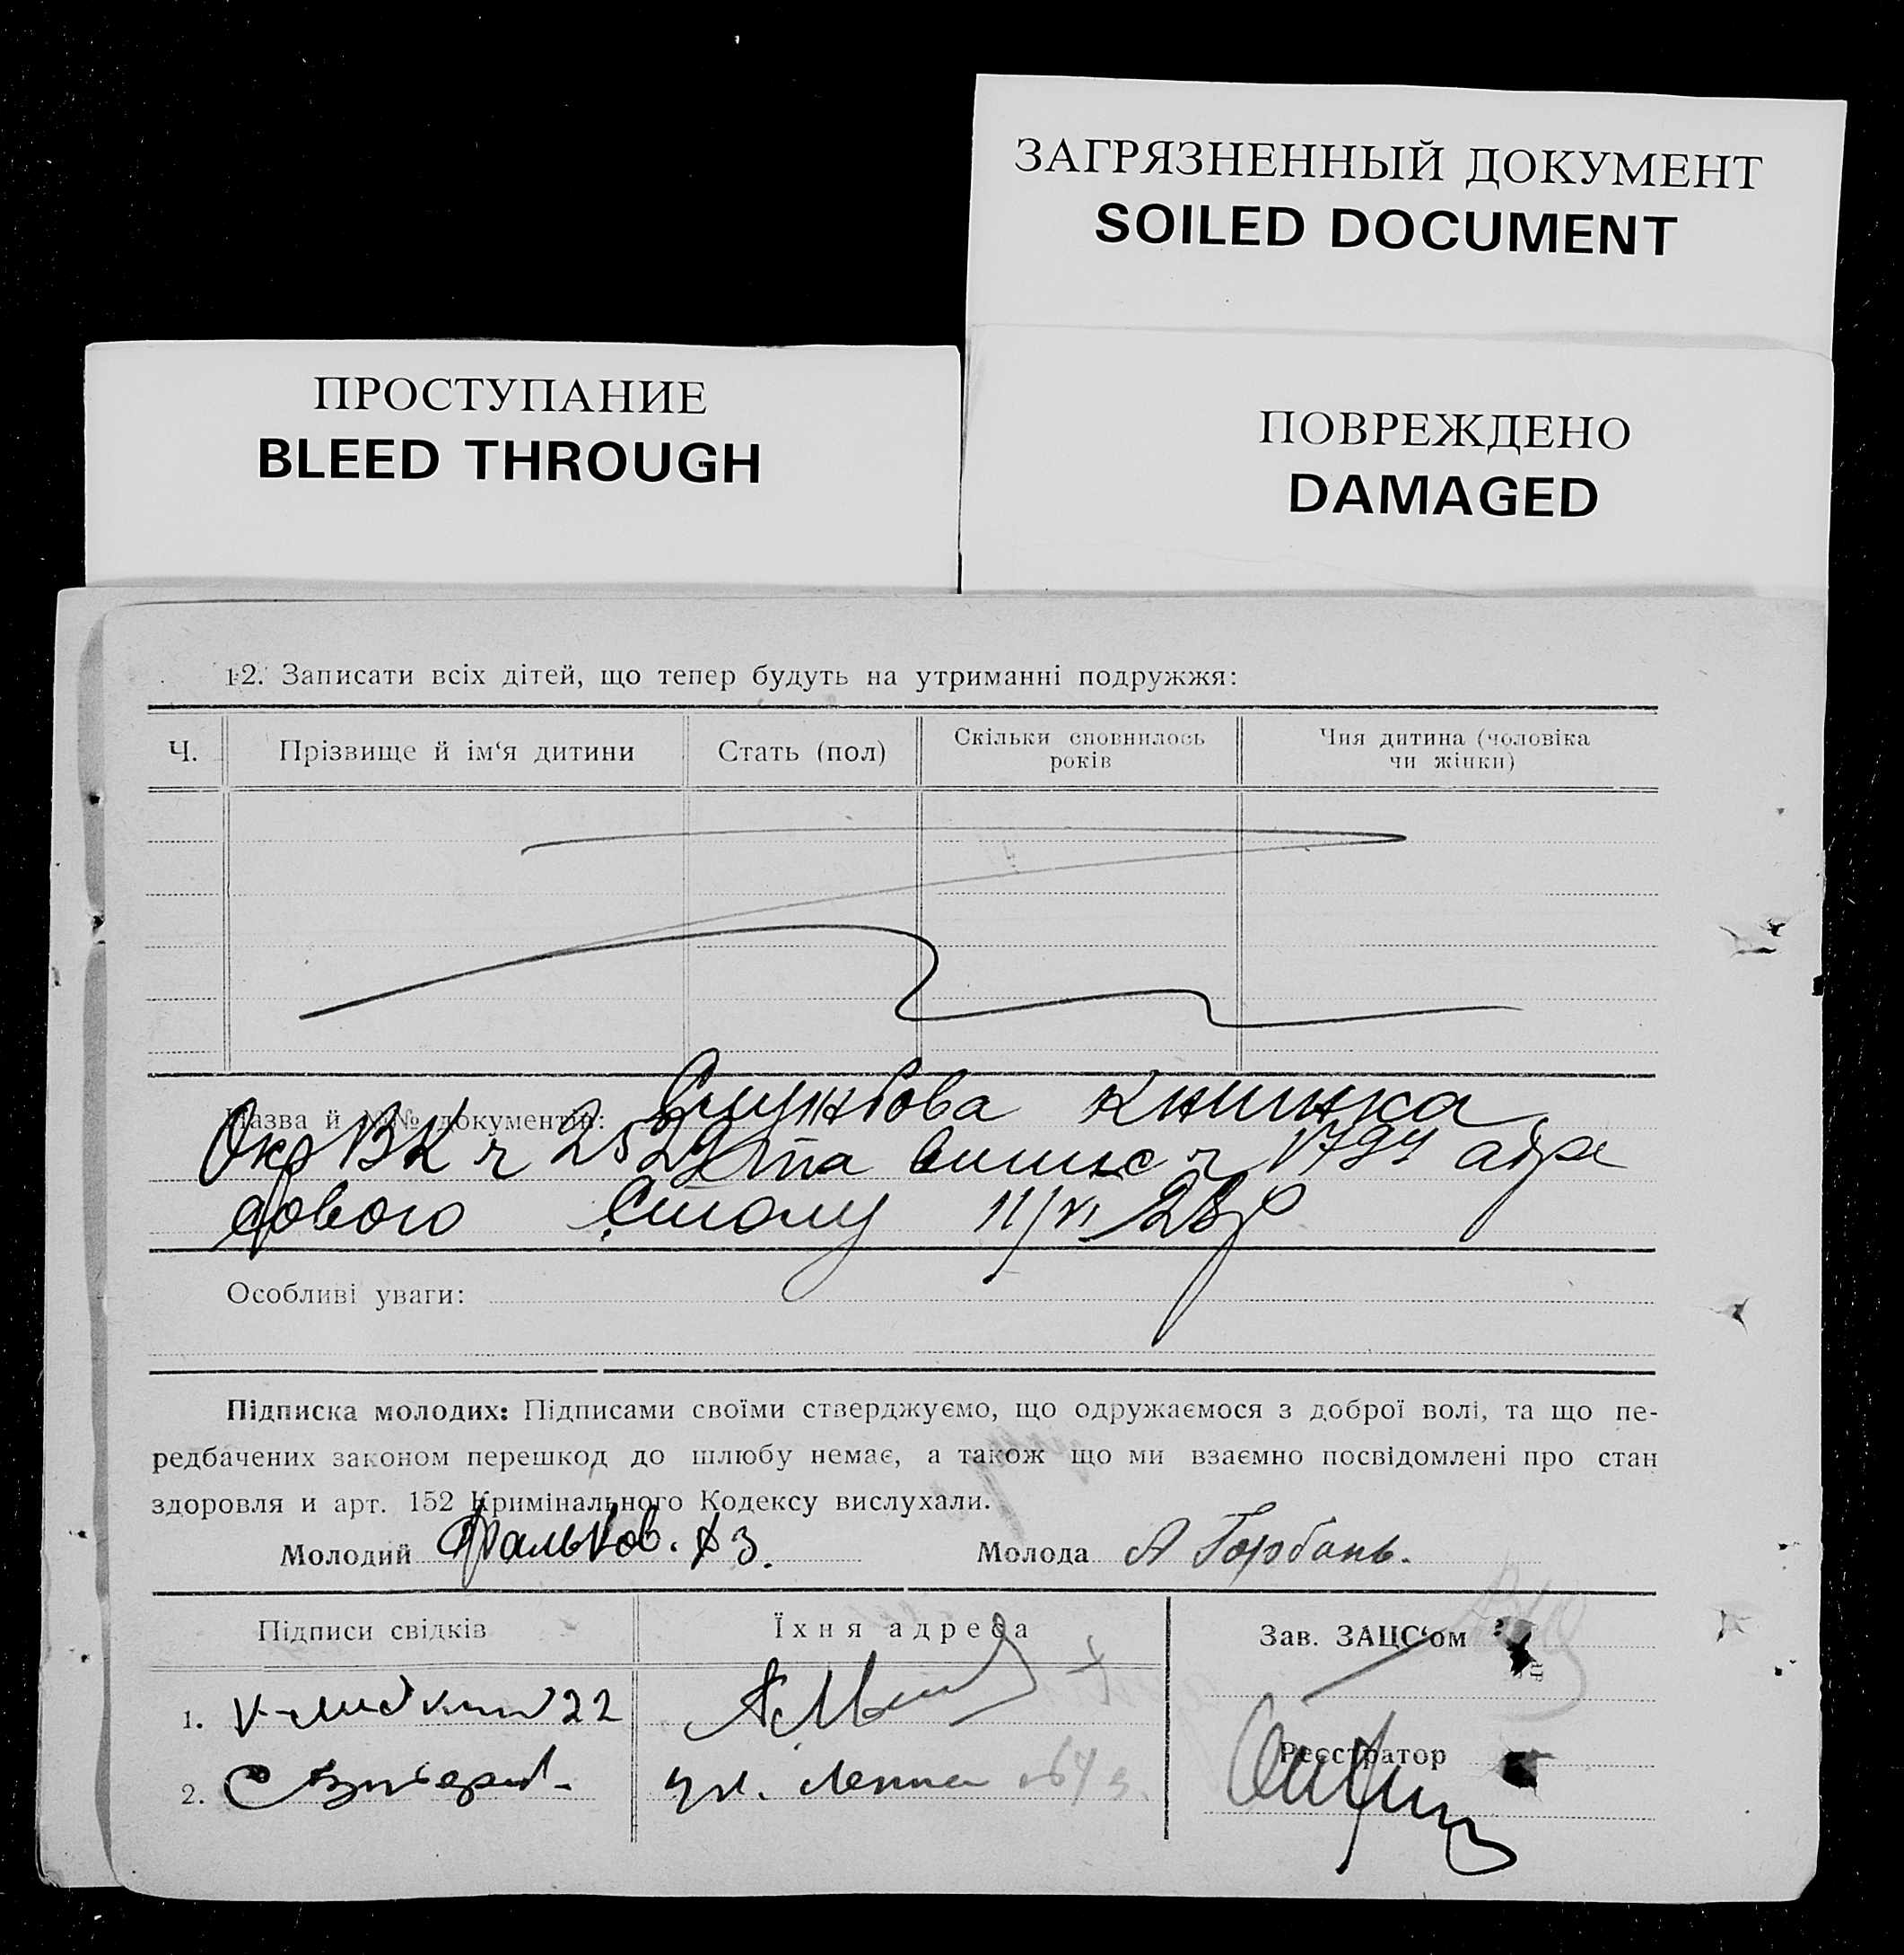 ЗАГРЯЗНЕННЫЙ ДОКУМЕНТ
SOILED DOCUMENT
ПРОСТУПАНИЕ
BLEED THROUGH
ПОВРЕЖДЕНО
DAMAGED
12. Записати всіх дітей, що тепер будуть на утриманні подружжя:
Ч.
Прізвище й ім‘я дитини
Стать (пол)
Скільки сповнилось
років
Чия дитина (чоловіка
чи жінки)
Назва й №№ документів: Службова книжка
Окр ВК ч 2529 та випис ч 1794 адре
сового столу 11/VI 28 р
Особливі уваги:
Підписка молодих: Підписами своїми стверджуємо, що одружаємося з доброї волі, та що пе-
редбачених законом перешкод до шлюбу немає, а також що ми взаємно посвідомлені про стан
здоровля и арт. 152 Кримінального Кодексу вислухали.
Молодий Фальков.
Молода А Горбань.
Підписи свідків
Їхня адреса
Зав. ЗАЦС‘ом
1. 22
2.
ул. Ленина
Реєстратор